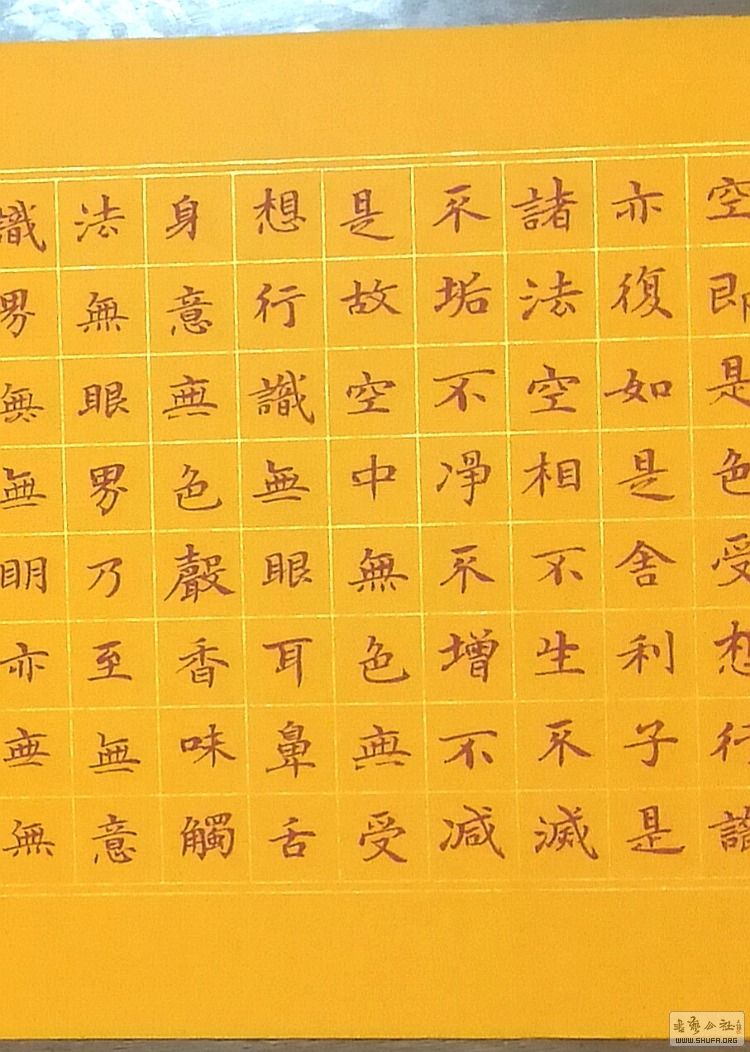 空即是色受想行識
亦復如是舍利子是
諸法空相不生不滅
不垢不淨不增不減
是故空中無色無受
想行識無眼耳鼻舌
身意無色聲香味觸
法無眼界乃至無意
識界無無明亦無無
WWW.SHUFA.ORG